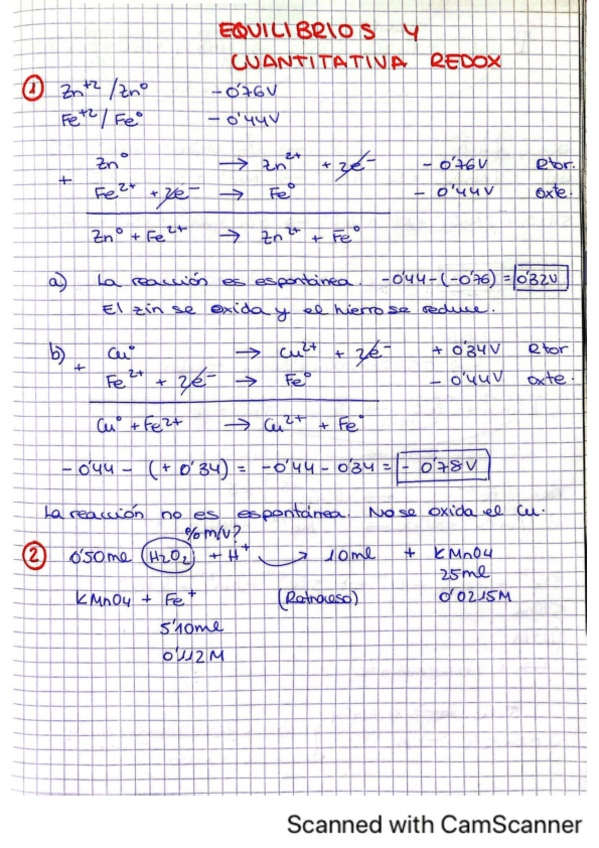 EQUILIBRIOS Y
CUANTITATIVA REDOX
① Zn⁺² / Zn⁰ - 0'76V
Fe⁺² / Fe⁰ - 0'44V
Zn⁰ → Zn²⁺ + 2e⁻ - 0'76V Rtor.
+ Fe²⁺ + 2e⁻ → Fe⁰ - 0'44V oxte.
Zn⁰ + Fe²⁺ → Zn²⁺ + Fe⁰
a) La reacción es espontánea. -0'44 - (-0'76) = 0'32V
El zin se oxida y el hierro se reduce.
b) Cu⁰ → Cu²⁺ + 2e⁻ + 0'34V Rtor
+ Fe²⁺ + 2e⁻ → Fe⁰ - 0'44V oxte.
Cu⁰ + Fe2+ → Cu²⁺ + Fe⁰
- 0'44 - (+ 0'34) = -0'44 - 0'34 = - 0'78V
La reacción no es espontánea. No se oxida el Cu.
% m/v?
② 0'50ml H₂O₂ + H⁺ 10ml + KMnO4
25ml
KMnO4 + Fe⁺ (Retroceso) 0'0215M
5'10ml
0'112M
Scanned with CamScanner